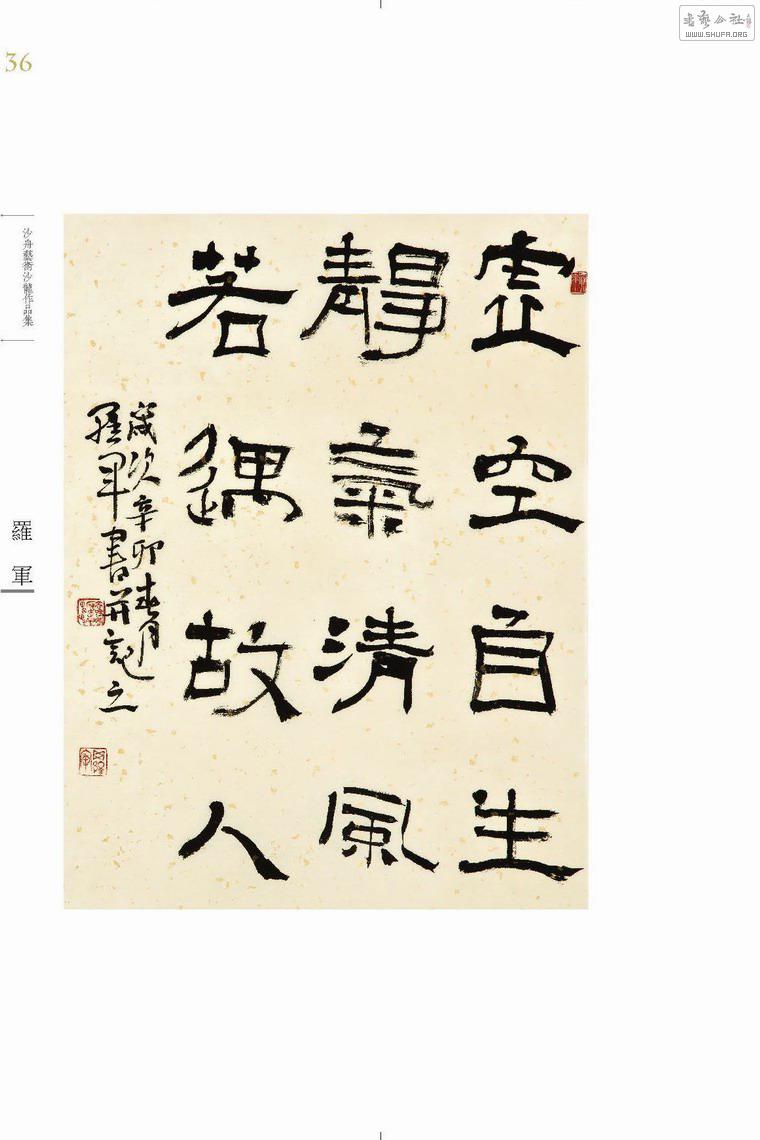 書藝公社
WWW.SHUFA.ORG
36
沙舟藝術沙龍作品集
羅軍
虛空自生
靜氣清風
若遇故人
歲次辛卯春月
羅軍書并記之